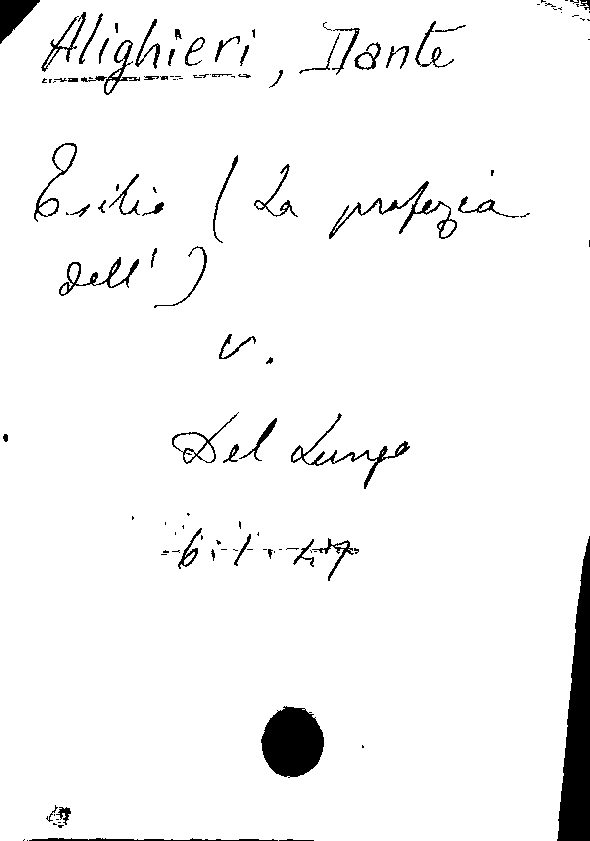 Alighieri, Dante
Esilio (La profezia
dell')
v.
Del Lungo
6.1.47